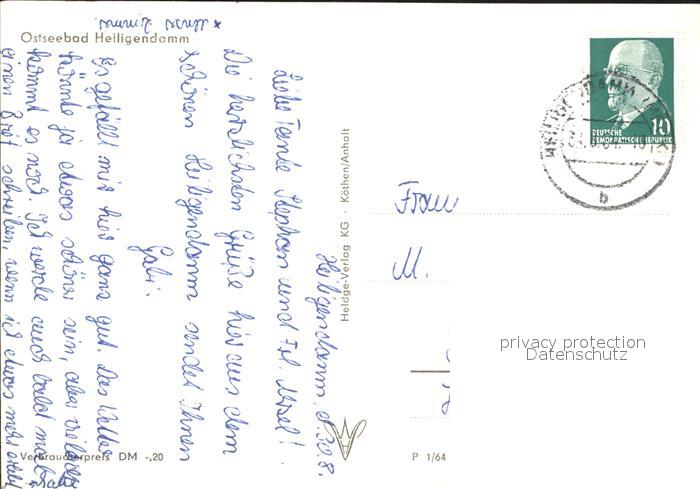 Ostseebad Heiligendamm
Heiligendamm, d. 30.8.
Liebe Tante Stephan und Frl.
Die herzlichsten Grüße hier aus dem
schönen Heiligendamm sendet Ihnen
Gabi.
Es gefällt mir hier ganz gut. Das Wetter
könnte ja etwas schöner sein, aber vielleicht
kommt es noch. Ich werde auch bald mal
einen Brief schreiben, wenn ich etwas mehr
Verbraucherpreis DM -,20
Heldge-Verlag KG · Köthen/Anhalt
P 1/64
Frau
M.
DEUTSCHE
DEMOKRATISCHE REPUBLIK
10
b
privacy protection
Datenschutz